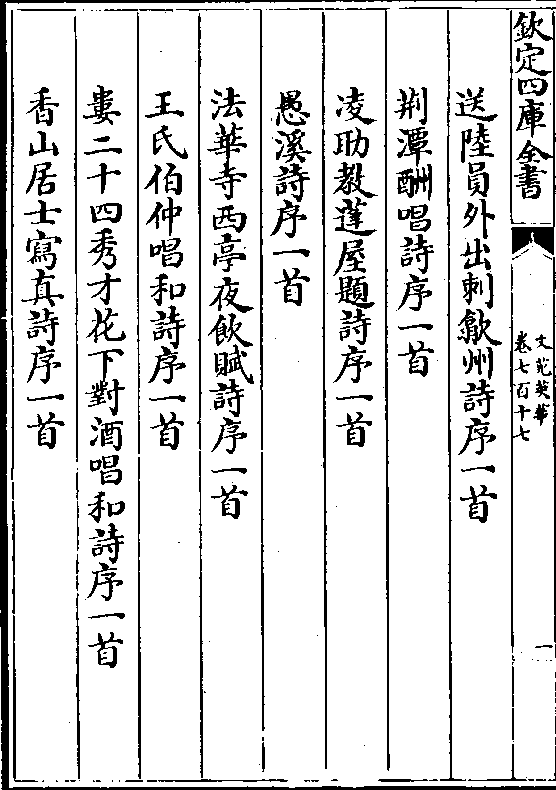 欽定四庫全書
文苑英華
卷七百十七
一
送陸員外出刺歙州詩序一首
荆潭酬唱詩序一首
凌助教蓬屋題詩序一首
愚溪詩序一首
法華寺西亭夜飲賦詩序一首
王氏伯仲唱和詩序一首
婁二十四秀才花下對酒唱和詩序一首
香山居士寫真詩序一首